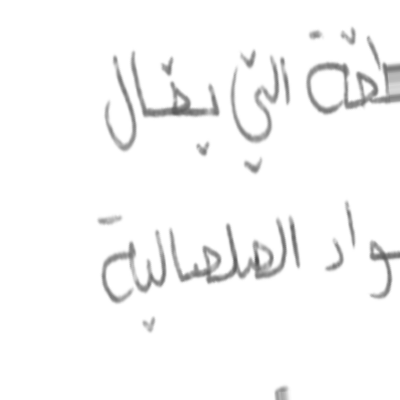 التي يقال
واد الصلصالية